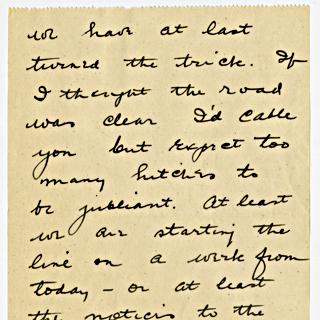 we have at last
turned the trick. If
I thought the road
was clear I'd cable
you but expect too
many hitches to
be jubilant. At least
we are starting the
line on a work from
today - or at least
the notices to the